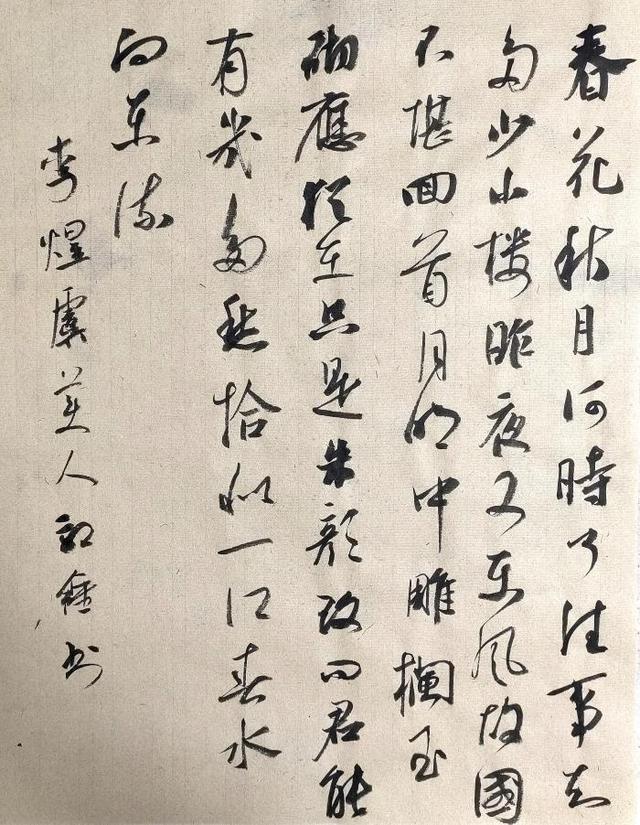 春花秋月何時了往事知
多少小楼昨夜又东风故國
不堪回首月明中雕欄玉
砌應犹在只是朱颜改问君能
有幾多愁恰似一江春水
向东流
李煜虞美人书